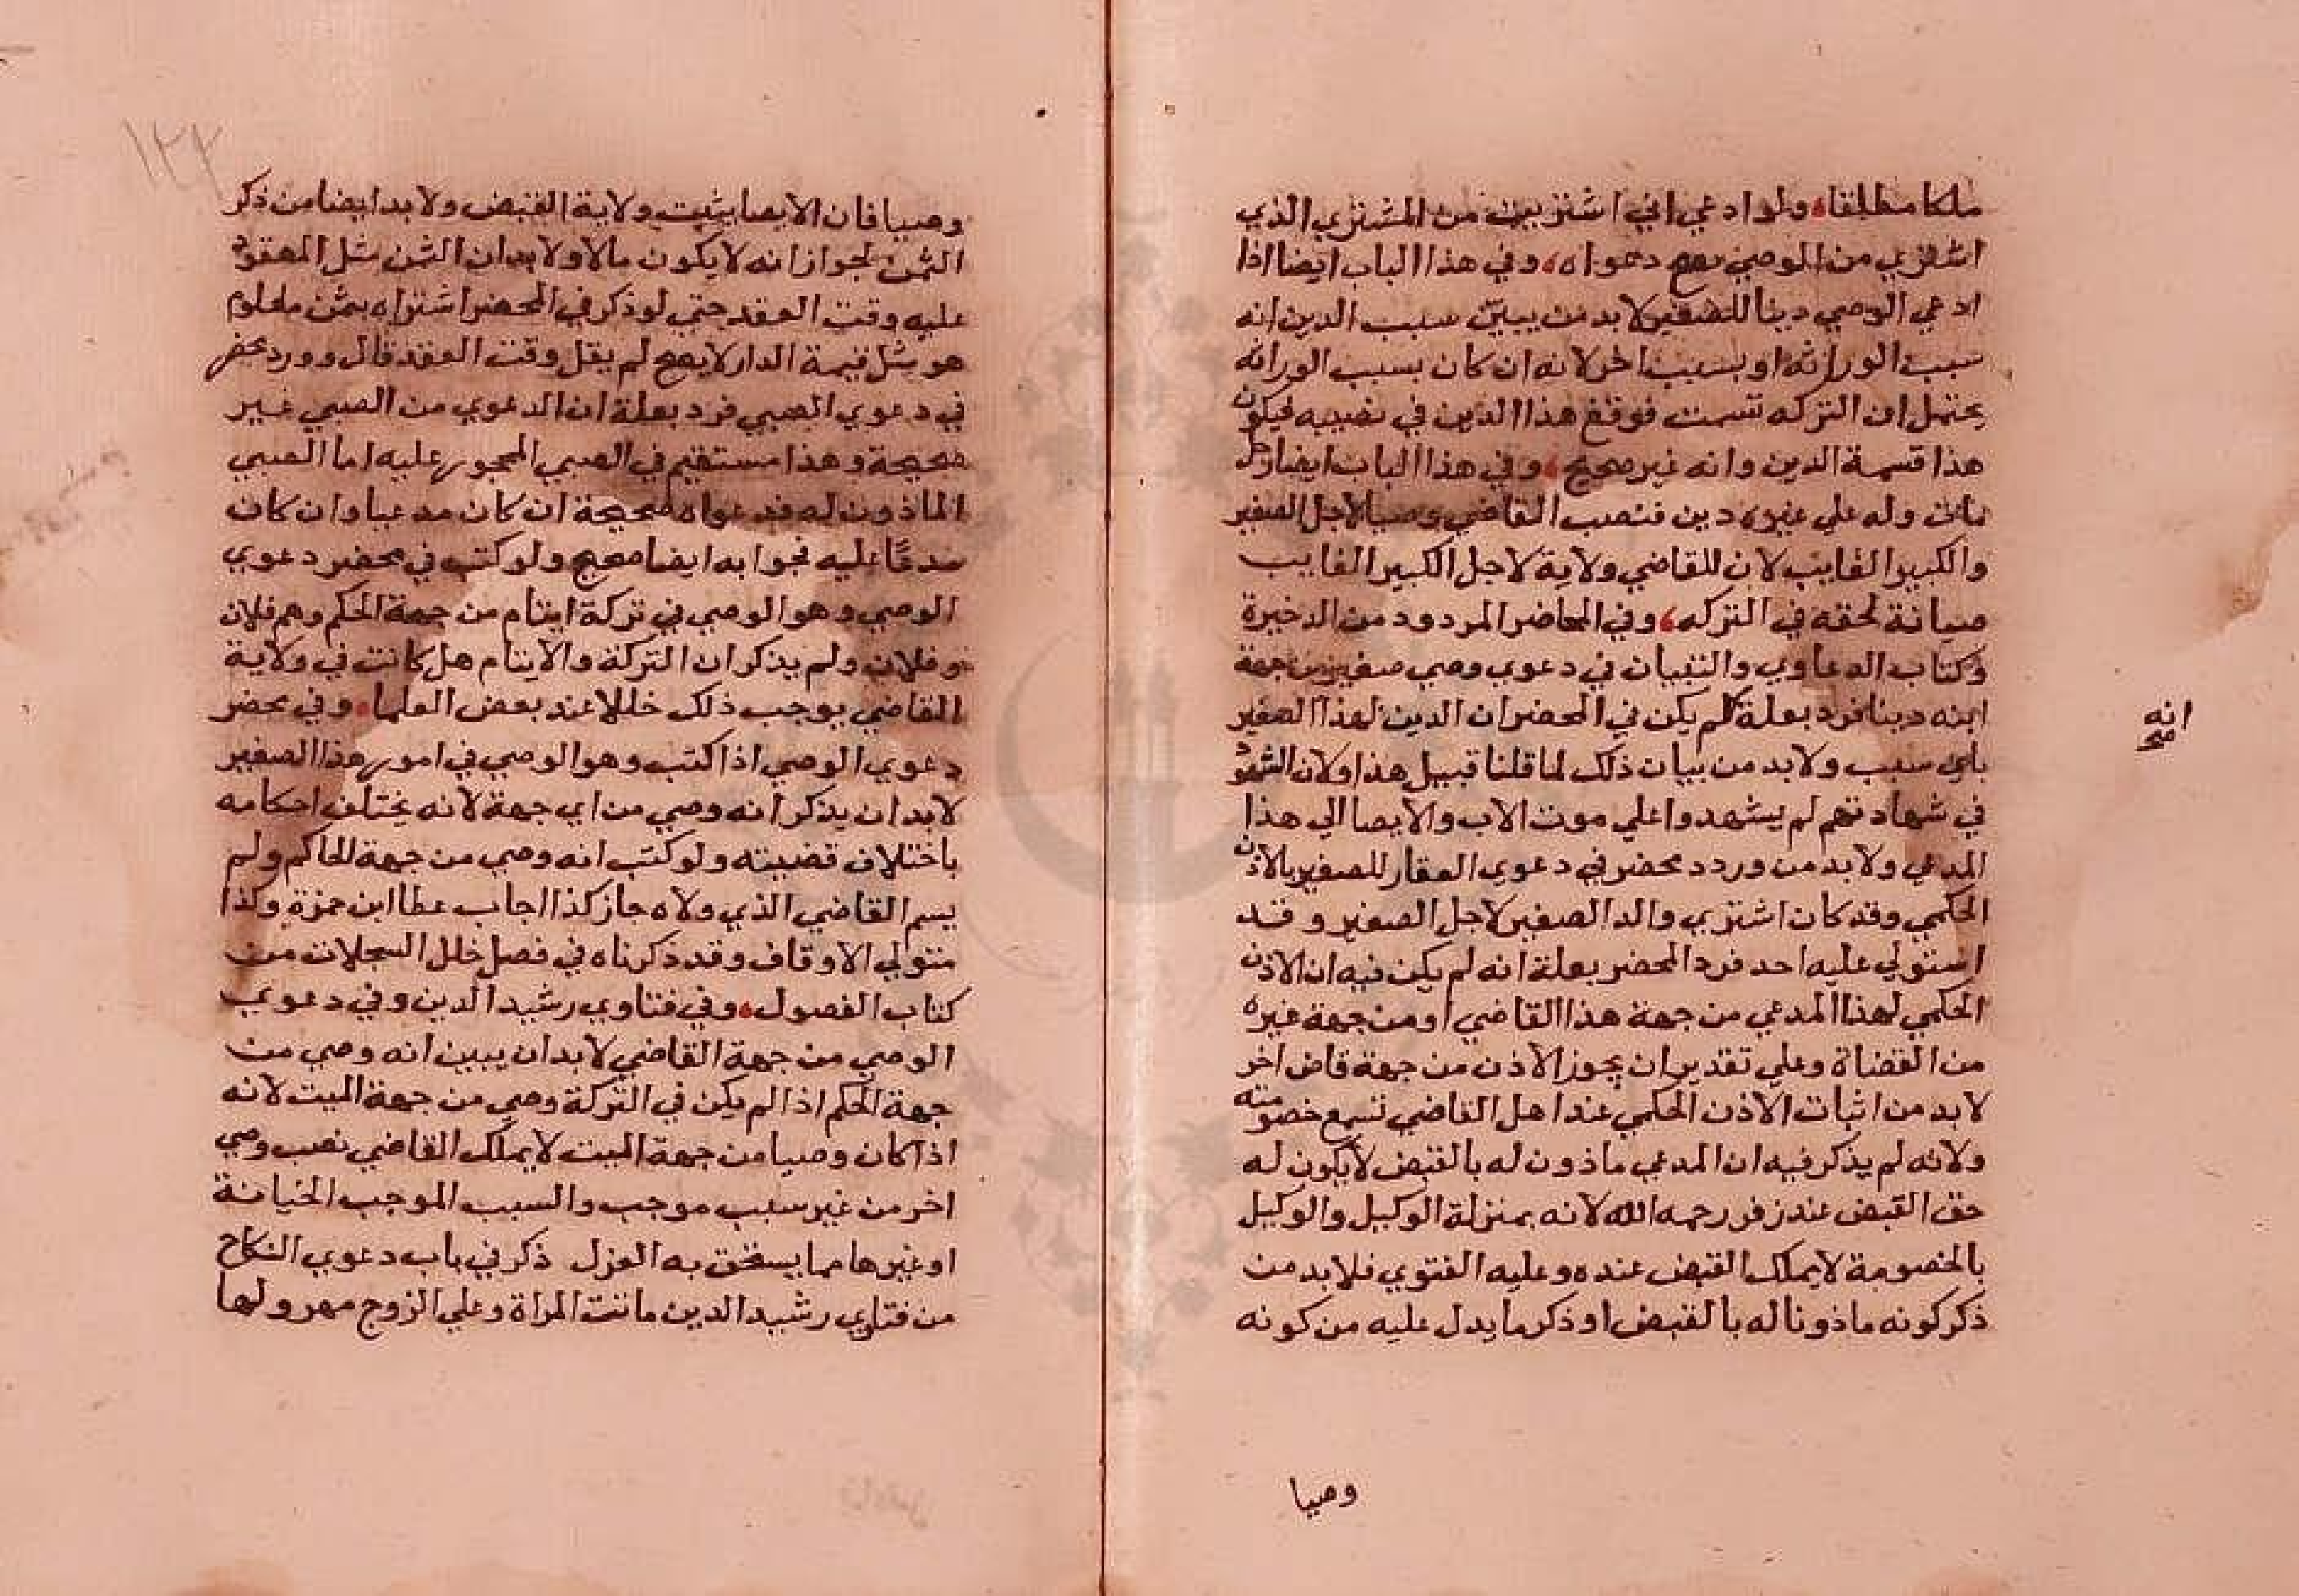 ملكا مطلقا ولو ادعي اني اشتريت من المشتري الذي
اشتري من الوصي يصح دعواه وفي هذا الباب ايضا اذا
ادعي الوصي دينا للصغير لا بد من يبين سبب الدين انه
سبب الوراثه او بسبب اخر لانه ان كان بسبب الوراثه
يحتمل ان التركه قسمت فوقع هذا الدين في نصيبه فيكون
هذا قسمة الدين وانه غير صحيح وفي هذا الباب ايضا رجل
مات وله علي غيره دين فنصب القاضي وصيا لاجل الصغير
والكبير الغايب لان للقاضي ولاية لاجل الكبير الغايب
صيانة لحقه في التركه وفي المحاضر المردود من الدخيرة
وكتاب الدعاوي والبنيان في دعوي وصي صغير من جهة
ابنه دينا فرد بعلة لم يكن في المحضر ان الدين لهذا الصغير
انه
صح
باي سبب ولا بد من بيان ذلك لما قلنا قبيل هذا ولان الشهود
في شهادتهم لم يشهدوا علي موت الاب والايصا الي هذا
المدعي ولا بد من وردد محضر في دعوي العقار للصغير بالاذن
الحكمي وقد كان اشتري والد الصغير لاجل الصغير وقد
استولي عليه احد فرد المحضر بعلة انه لم يكن فيه ان الاذن
الحكمي لهذا المدعي من جهة هذا القاضي او من جهة غيره
من القضاة وعلي تقدير ان يجوز الاذن من جهة قاض اخر
لا بد من اثبات الاذن الحكمي عند اهل القاضي تسمع خصومته
ولانه لم يذكر فيه ان المدعي ماذون له بالقبض لا يكون له
حق القبض عند زفر رحمه الله لانه بمنزلة الوكيل والوكيل
بالخصومة لا يملك القبض عنده وعليه الفتوي فلا بد من
ذكر كونه ماذونا له بالقبض او ذكر ما يدل عليه من كونه
وصيا
١٢٢
وصيا فان الايصا يثبت ولاية القبض ولا بد ايضا من ذكر
الثمن لجواز انه لا يكون مالا ولا بد ان الثمن مثل المعقود
عليه وقت العقد حتي لو ذكر في المحضر اشتراه بثمن معلوم
هو مثل قيمة الدار لا يصح لم يقل وقت العقد قال وورد محضر
في دعوي الصبي فرد بعلة ان الدعوي من الصبي غير
صحيحة وهذا مستقيم في الصبي المحجور عليه اما الصبي
الماذون له فدعواه صحيحة ان كان مدعيا وان كان
مدعًا عليه فجوابه ايضا صحيح ولو كتب في محضر دعوي
الوصي وهو الوصي في تركة ايتام من جهة الحكم وهم فلان
وفلان ولم يذكر ان التركة والايتام هل كانت في ولاية
القاضي يوجب ذلك خللا عند بعض العلما وفي محضر
دعوي الوصي اذا كتب وهو الوصي في امور هذا الصغير
لا بد ان يذكر انه وصي من اي جهة لانه يختلف احكامه
باختلاف قضيته ولو كتب انه وصي من جهة الحاكم ولم
يسم القاضي الذي ولاه جاز كذا اجاب عطا ابن حمزة وكذا
متولي الاوقاف وقد ذكرناه في فصل خلل السجلات من
كتاب الفصول وفي فتاوي رشيد الدين وفي دعوي
الوصي من جهة القاضي لا بد ان يبين انه وصي من
جهة الحكم اذا لم يكن في التركة وصي من جهة الميت لانه
اذا كان وصيا من جهة الميت لا يملك القاضي نصب وصي
اخر من غير سبب موجب والسبب الموجب الخيانة
او غيرها مما يستحق به العزل ذكر في باب دعوي النكاح
من فتاوي رشيد الدين ماتت المراة وعلي الزوج مهر ولها